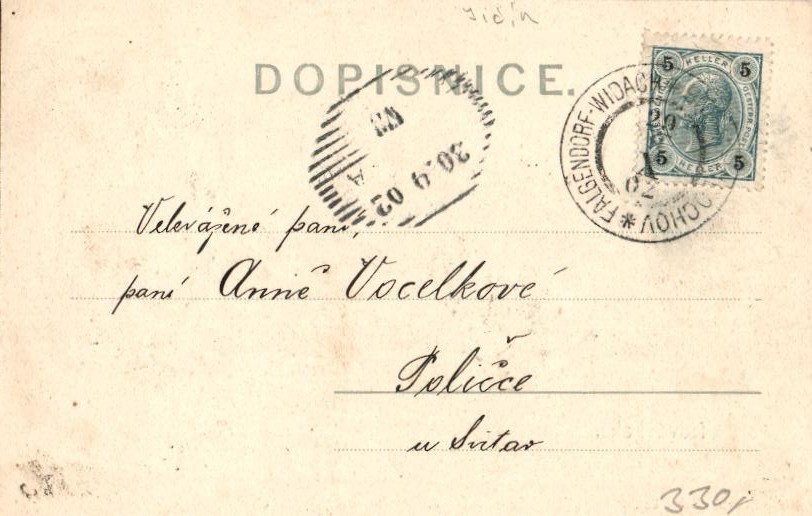 Jičín
DOPISNICE.
5 HELLER 5
5 HELLER 5
FALGENDORF-WIDACH
OCHOV
20
02
20.9.02
A
Velevážené paní,
paní Anně Vocelkové
Poličce
u Svitav
330,